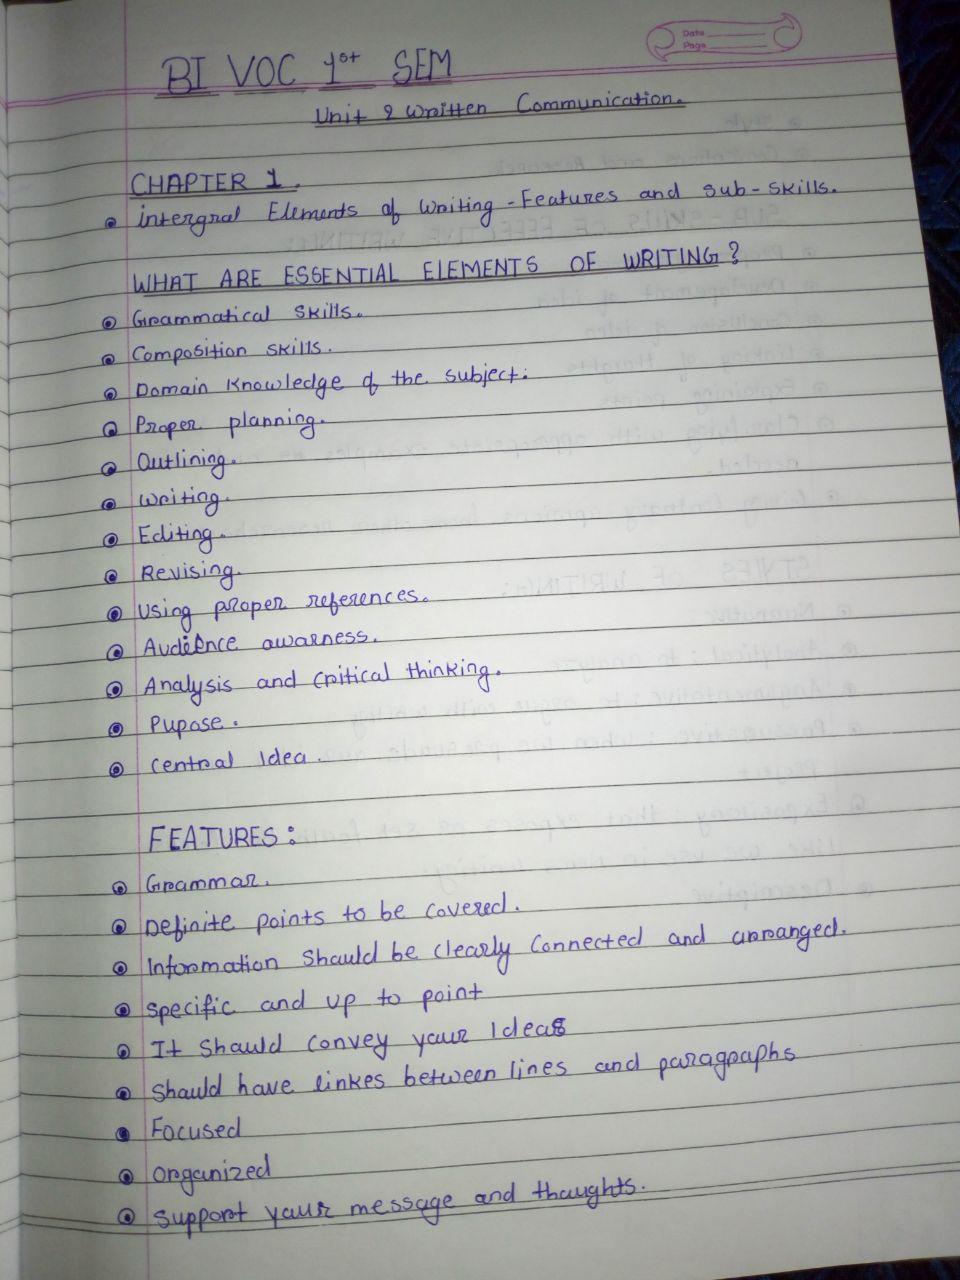 Date
Page
BI VOC 1st SEM
Unit 2 Written Communication.
CHAPTER 1.
intergral Elements of Writing - Features and sub-skills.
WHAT ARE ESSENTIAL ELEMENTS OF WRITING?
Grammatical skills.
Composition skills.
Domain knowledge of the subject.
Proper planning.
Outlining.
Writing.
Editing.
Revising.
Using proper references.
Audience awarness.
Analysis and critical thinking.
Pupose.
Central Idea.
FEATURES:
Grammar.
Definite points to be covered.
Information should be clearly connected and arranged.
Specific and up to point
It should convey your Ideas
Should have linkes between lines and paragraphs
Focused
Organized
Support your message and thoughts.